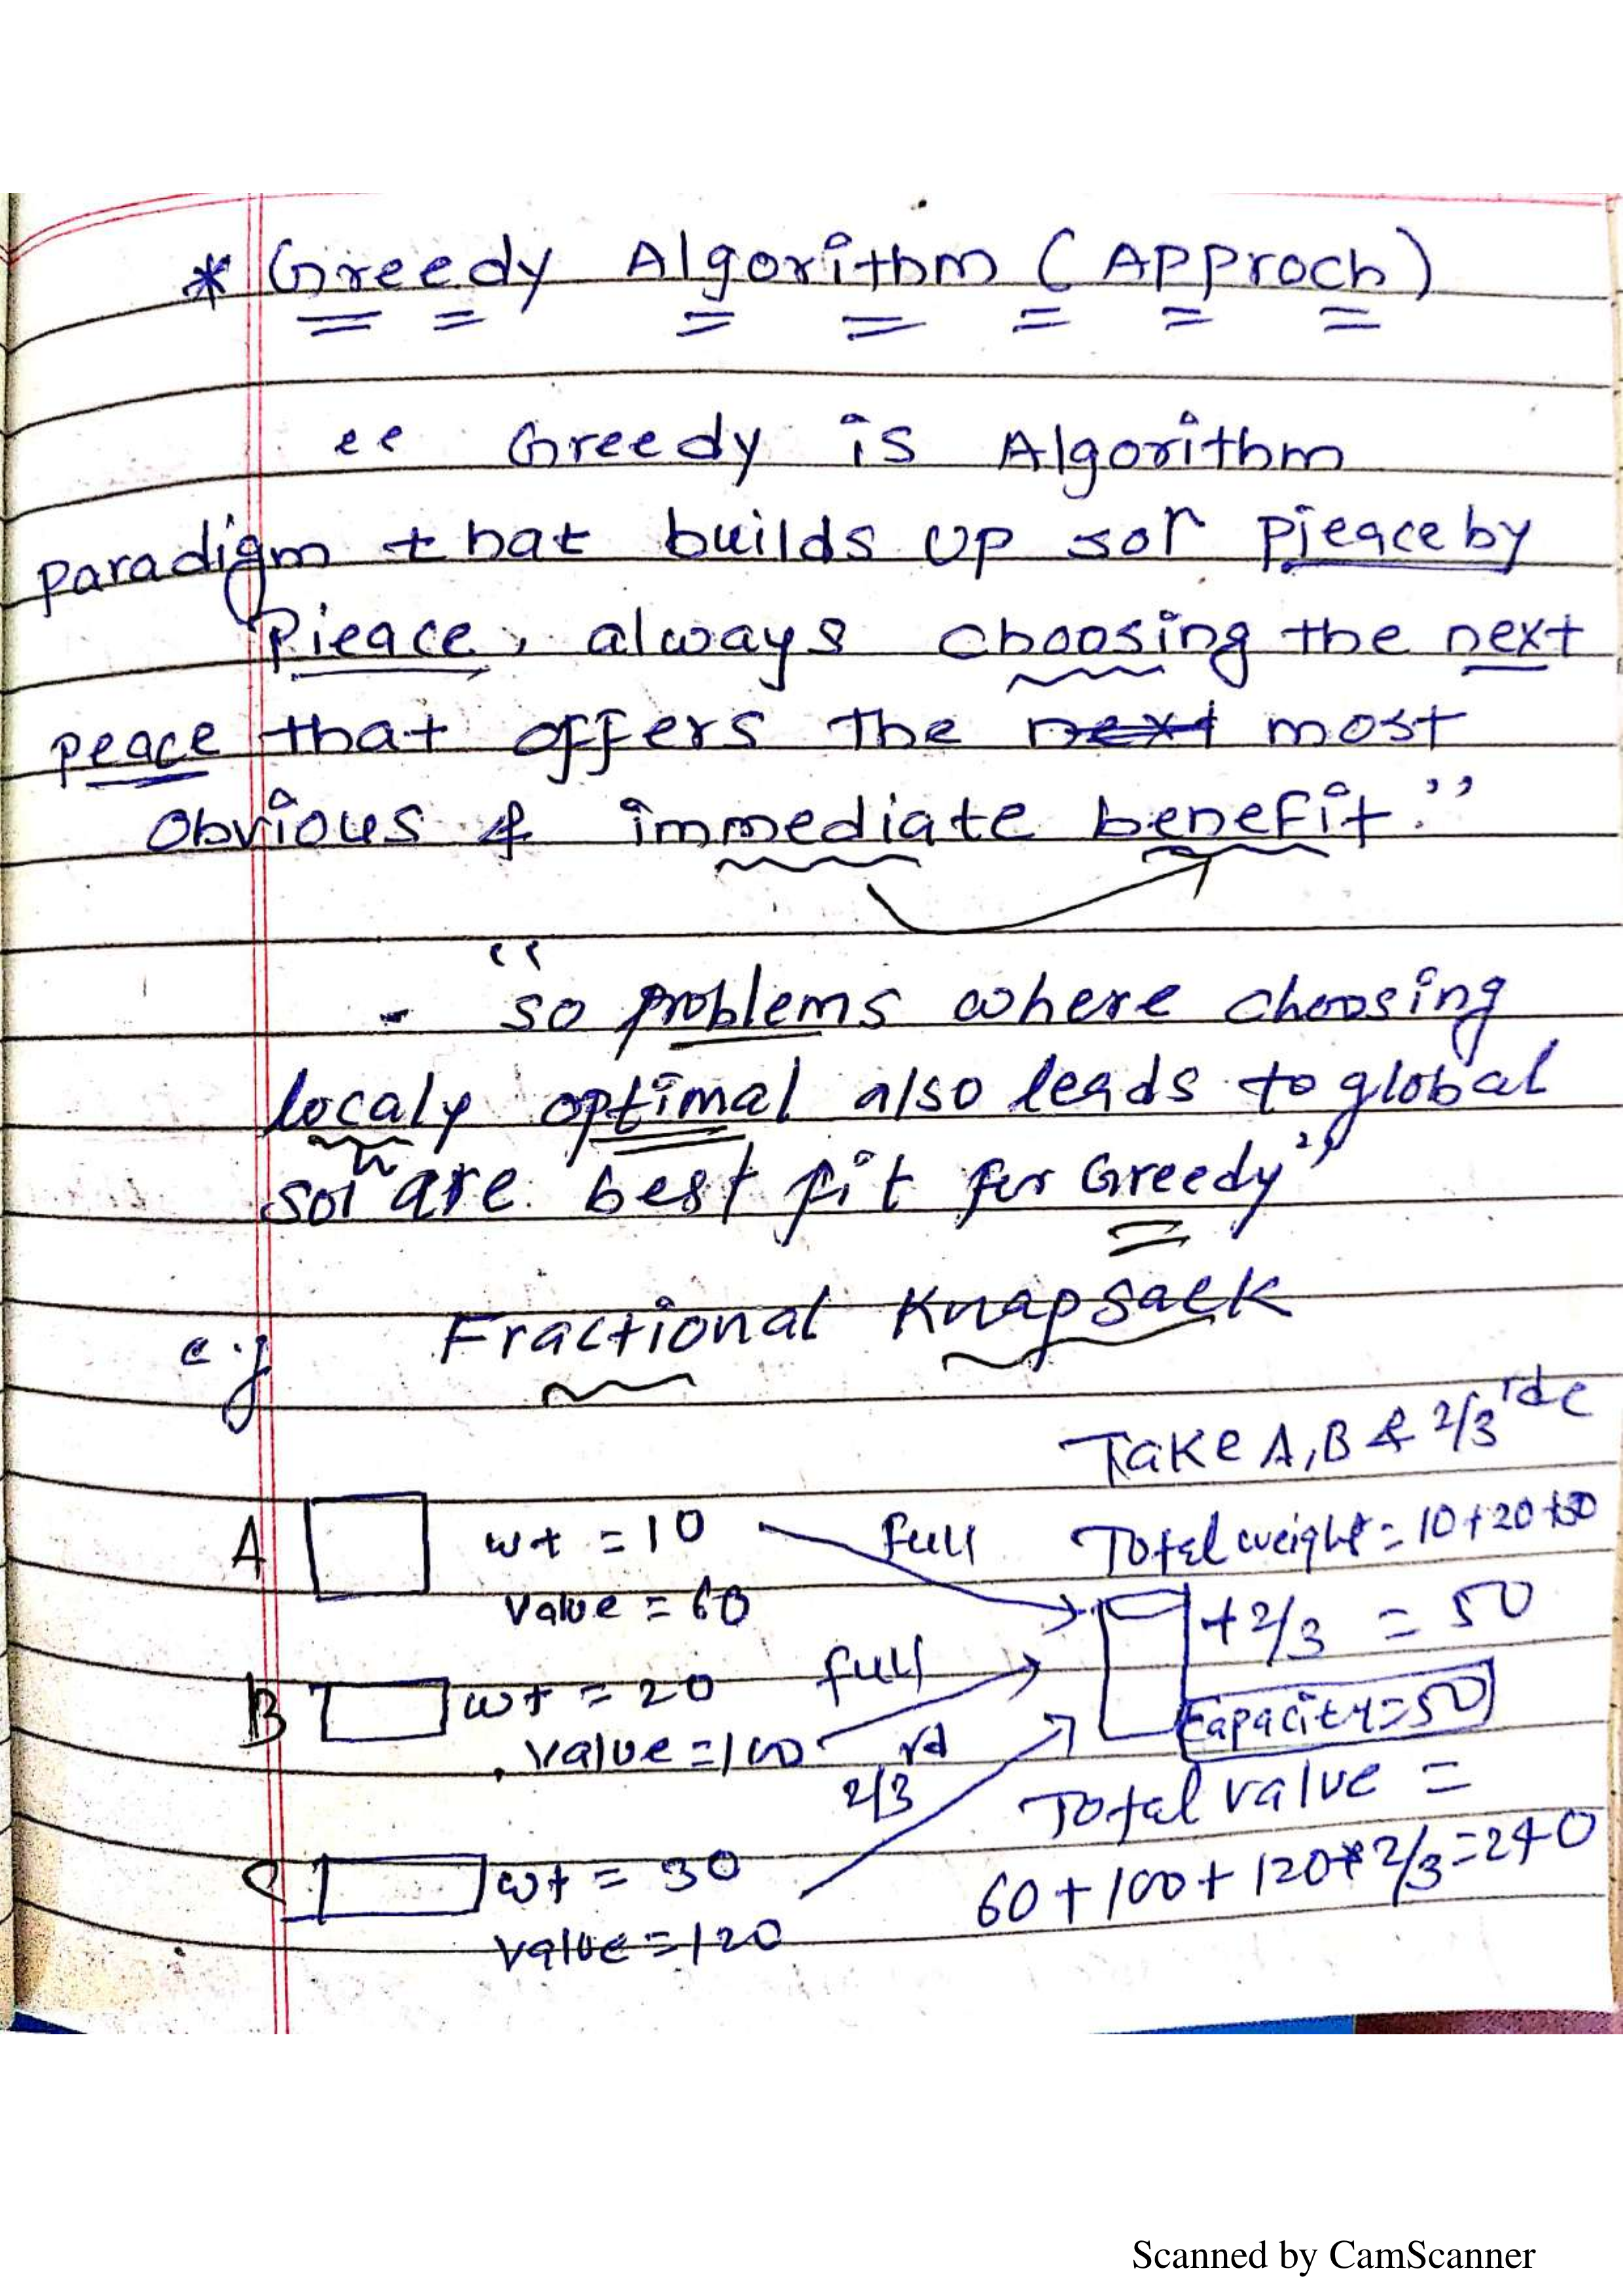 * Greedy Algorithm (Approch)
“ Greedy is Algorithm
paradigm that builds up solⁿ pieace by
Pieace, always choosing the next
peace that offers the next most
obvious & immediate benefit.”
- “so problems where choosing
localy optimal also leads to global
solⁿ are best fit for Greedy”
e.g Fractional Knapsack
Take A, B & 2/3rd C
A wt = 10 full Total weight = 10+20+30
Value = 60 + 2/3 = 50
B wt = 20 full
value = 100 Capacity = 50
2/3 rd Total value =
C wt = 30 60 + 100 + 120 * 2/3 = 240
value = 120
Scanned by CamScanner